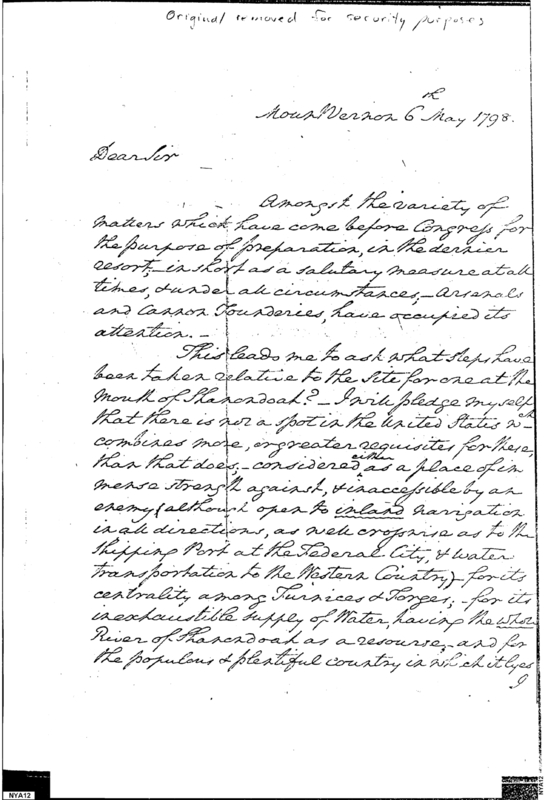 Original removed for security purposes
Mount Vernon 6th May 1798.
Dear Sir
Amongst the variety of
matters which have come before Congress for
the purpose of preparation, in the dernier
resort, - in short as a salutary measure at all
times, & under all circumstances, - Arsenals
and Cannon Founderies, have occupied its
attention. -
This leads me to ask what steps have
been taken relative to the Site for one at the
Mouth of Shanondoah? - I will pledge myself
that there is not a spot in the United States wch
combines more, or greater requisites for these,
than that does; - considered either as a place of im
mense strength against, & inaccessible by an
enemy (although open to inland navigation
in all directions, as well crosswise as to the
Shipping Port at the Federal City, & water
transportation to the Western Country) - for its
centrality among Furnices & Forges; - for its
inexhaustible supply of Water, having the whole
River of Shanondoah as a resourse; - and for
the populous & plentiful country in which it lyes
I
NYA12
NYA12